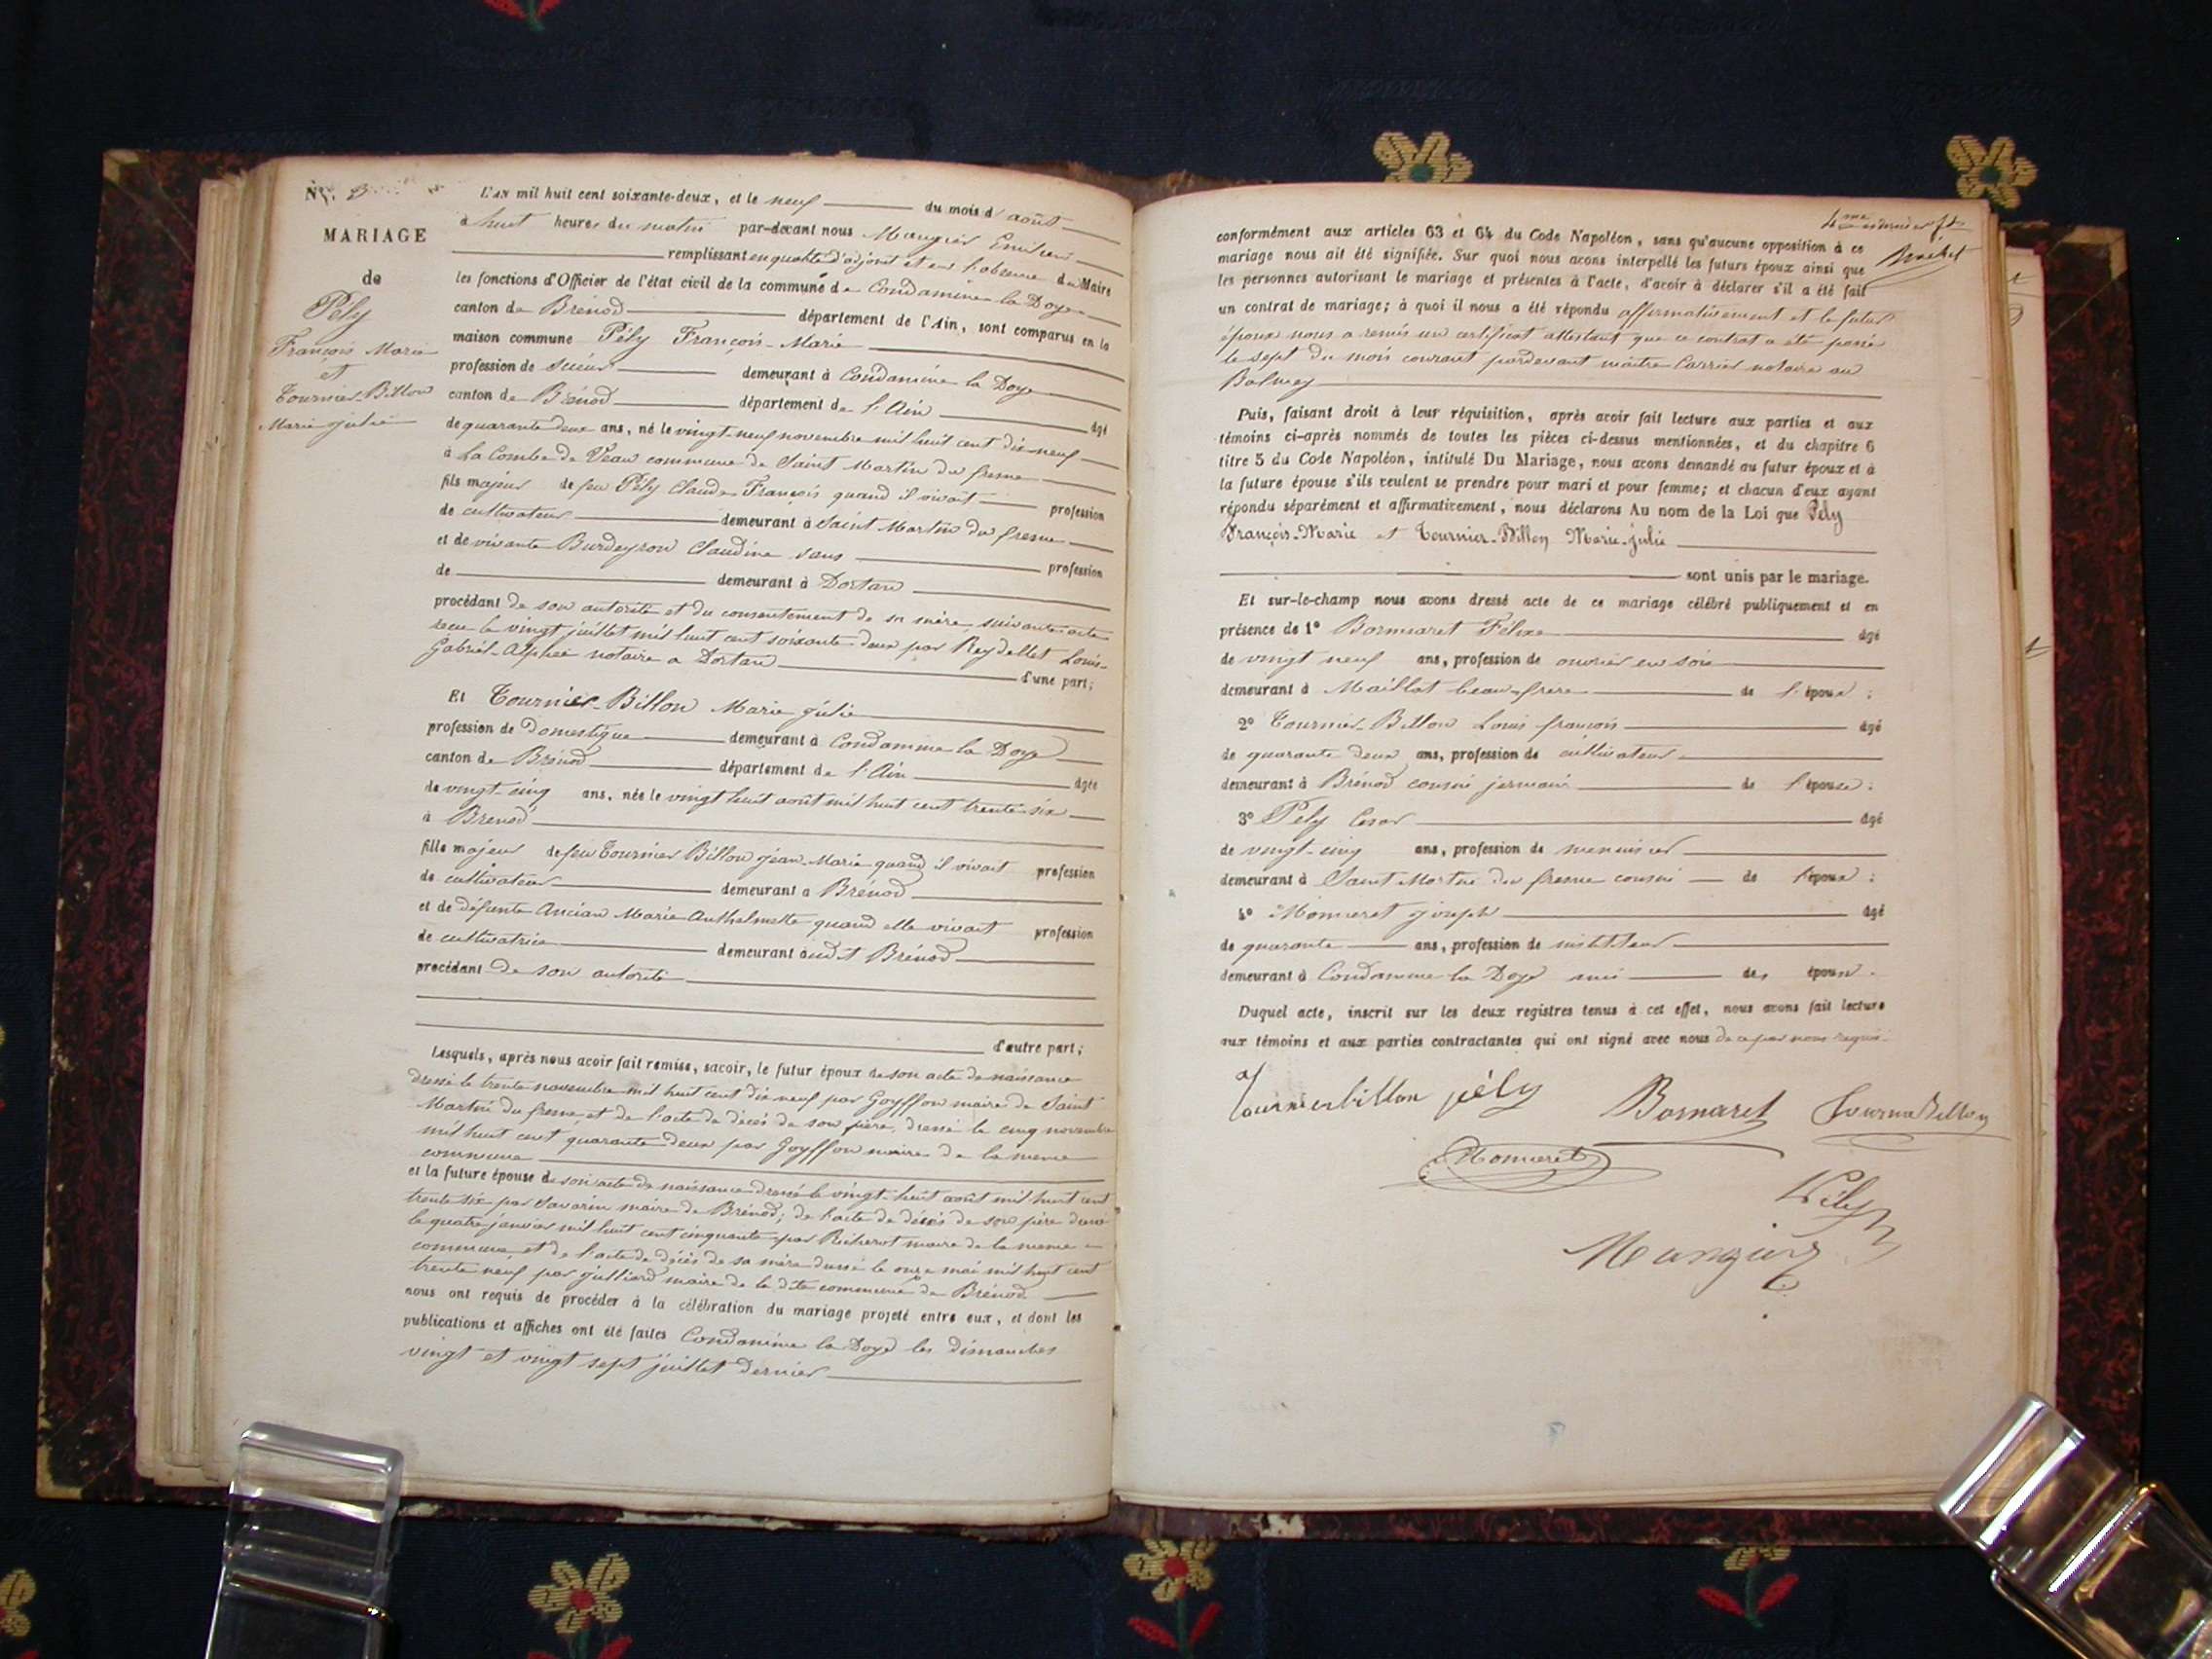 N°. 3
MARIAGE
de
Pély
François Marie
et
Tournier-Billon
Marie julie
L'AN mil huit cent soixante-deux, et le neuf du mois d'août
à huit heures du matin par-devant nous Maugier
remplissant en qualité d'adjoint et en l'absence du Maire
les fonctions d'Officier de l'état civil de la commune de Condamine la Doye
canton de Brénod département de l'Ain, sont comparus en la
maison commune Pély François-Marie
profession de scieur demeurant à Condamine la Doye
canton de Brénod département de l'Ain âgé
de quarante deux ans, né le vingt-neuf novembre mil huit cent dix-neuf
à La Combe de Veau commune de Saint Martin du fresne
fils majeur de feu Pély Claude François quand il vivait profession
de cultivateur demeurant à Saint Martin du fresne
et de vivante Burdeyron Claudine sans profession
de demeurant à Dortan
procédant de son autorité et du consentement de sa mère suivant acte
recu le vingt juillet mil huit cent soixante-deux par Reydellet Louis-
Gabriel-Alphée notaire a Dortan d'une part;
Et Tournier-Billon Marie julie
profession de Domestique demeurant à Condamine la Doye
canton de Brénod département de l'Ain âgée
de vingt-cinq ans, née le vingt huit août mil huit cent trente-six
à Brénod
fille majeur de feu Tournier Billon jean-Marie quand il vivait profession
de cultivateur demeurant a Brénod
et de défunte Ancian Marie Anthelmette quand elle vivait profession
de cultivatrice demeurant audit Brénod
procédant de son autorité
d'autre part;
Lesquels, après nous avoir fait remise, savoir, le futur époux de son acte de naissance
dressé le trente novembre mil huit cent dix neuf par Goyffon maire de Saint
Martin du fresne et de l'acte de décès de son père, dressé le cinq novembre
mil huit cent quarante deux par Goyffon maire de la meme
commune
et la future épouse de son acte de naissance dressé le vingt-huit août mil huit cent
trente six par Savarin maire de Brénod; de l'acte de décès de son père dressé
le quatre janvier mil huit cent cinquante par Richerot maire de la meme
commune et de l'acte de décès de sa mère dressé le onze mai mil huit cent
trente neuf par julliard maire de la dite commune de Brénod
nous ont requis de procéder à la célébration du mariage projeté entre eux, et dont les
publications et affiches ont été faites Condamine la Doye les dimanches
vingt et vingt sept juillet dernier
conformément aux articles 63 et 64 du Code Napoléon, sans qu'aucune opposition à ce
mariage nous ait été signifiée. Sur quoi nous avons interpellé les futurs époux ainsi que
les personnes autorisant le mariage et présentes à l'acte, d'avoir à déclarer s'il a été fait
un contrat de mariage; à quoi il nous a été répondu affirmativement et le futur
époux nous a remis un certificat attestant que ce contrat a été passé
le sept du mois courant pardevant maitre Carrier notaire au
Balmay
Puis, faisant droit à leur réquisition, après avoir fait lecture aux parties et aux
témoins ci-après nommés de toutes les pièces ci-dessus mentionnées, et du chapitre 6
titre 5 du Code Napoléon, intitulé Du Mariage, nous avons demandé au futur époux et à
la future épouse s'ils veulent se prendre pour mari et pour femme; et chacun d'eux ayant
répondu séparément et affirmativement, nous déclarons Au nom de la Loi que Pély
François-Marie et Tournier-Billon Marie-julie
sont unis par le mariage.
Et sur-le-champ nous avons dressé acte de ce mariage célébré publiquement et en
présence de 1° Bornaret Félix âgé
de vingt neuf ans, profession de ouvrier en soie
demeurant à Maillat beau-frere de l'époux;
2° Tournier-Billon Louis françois âgé
de quarante deux ans, profession de cultivateur
demeurant à Brénod cousin jermain de l'épouse;
3° Pély Cesar âgé
de vingt-cinq ans, profession de menuisier
demeurant à Saint Martin du fresne cousin de l'époux;
4° Monneret joseph âgé
de quarante ans, profession de instituteur
demeurant à Condamine la Doye ami des époux.
Duquel acte, inscrit sur les deux registres tenus à cet effet, nous avons fait lecture
aux témoins et aux parties contractantes qui ont signé avec nous de ce par nous requis.
Tournierbillon pély Bornaret TournierBillon
Monneret
Pély
Maugier